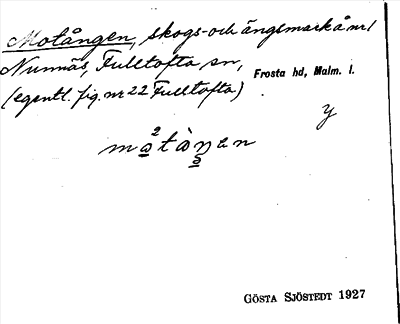 Motången, skogs- och ängsmark å nr 1
Nunnäs, Fulltofta sn,
Frosta hd, Malm. l.
(egentl. fig. nr 22 Fulltofta)
y
GÖSTA SJÖSTEDT 1927